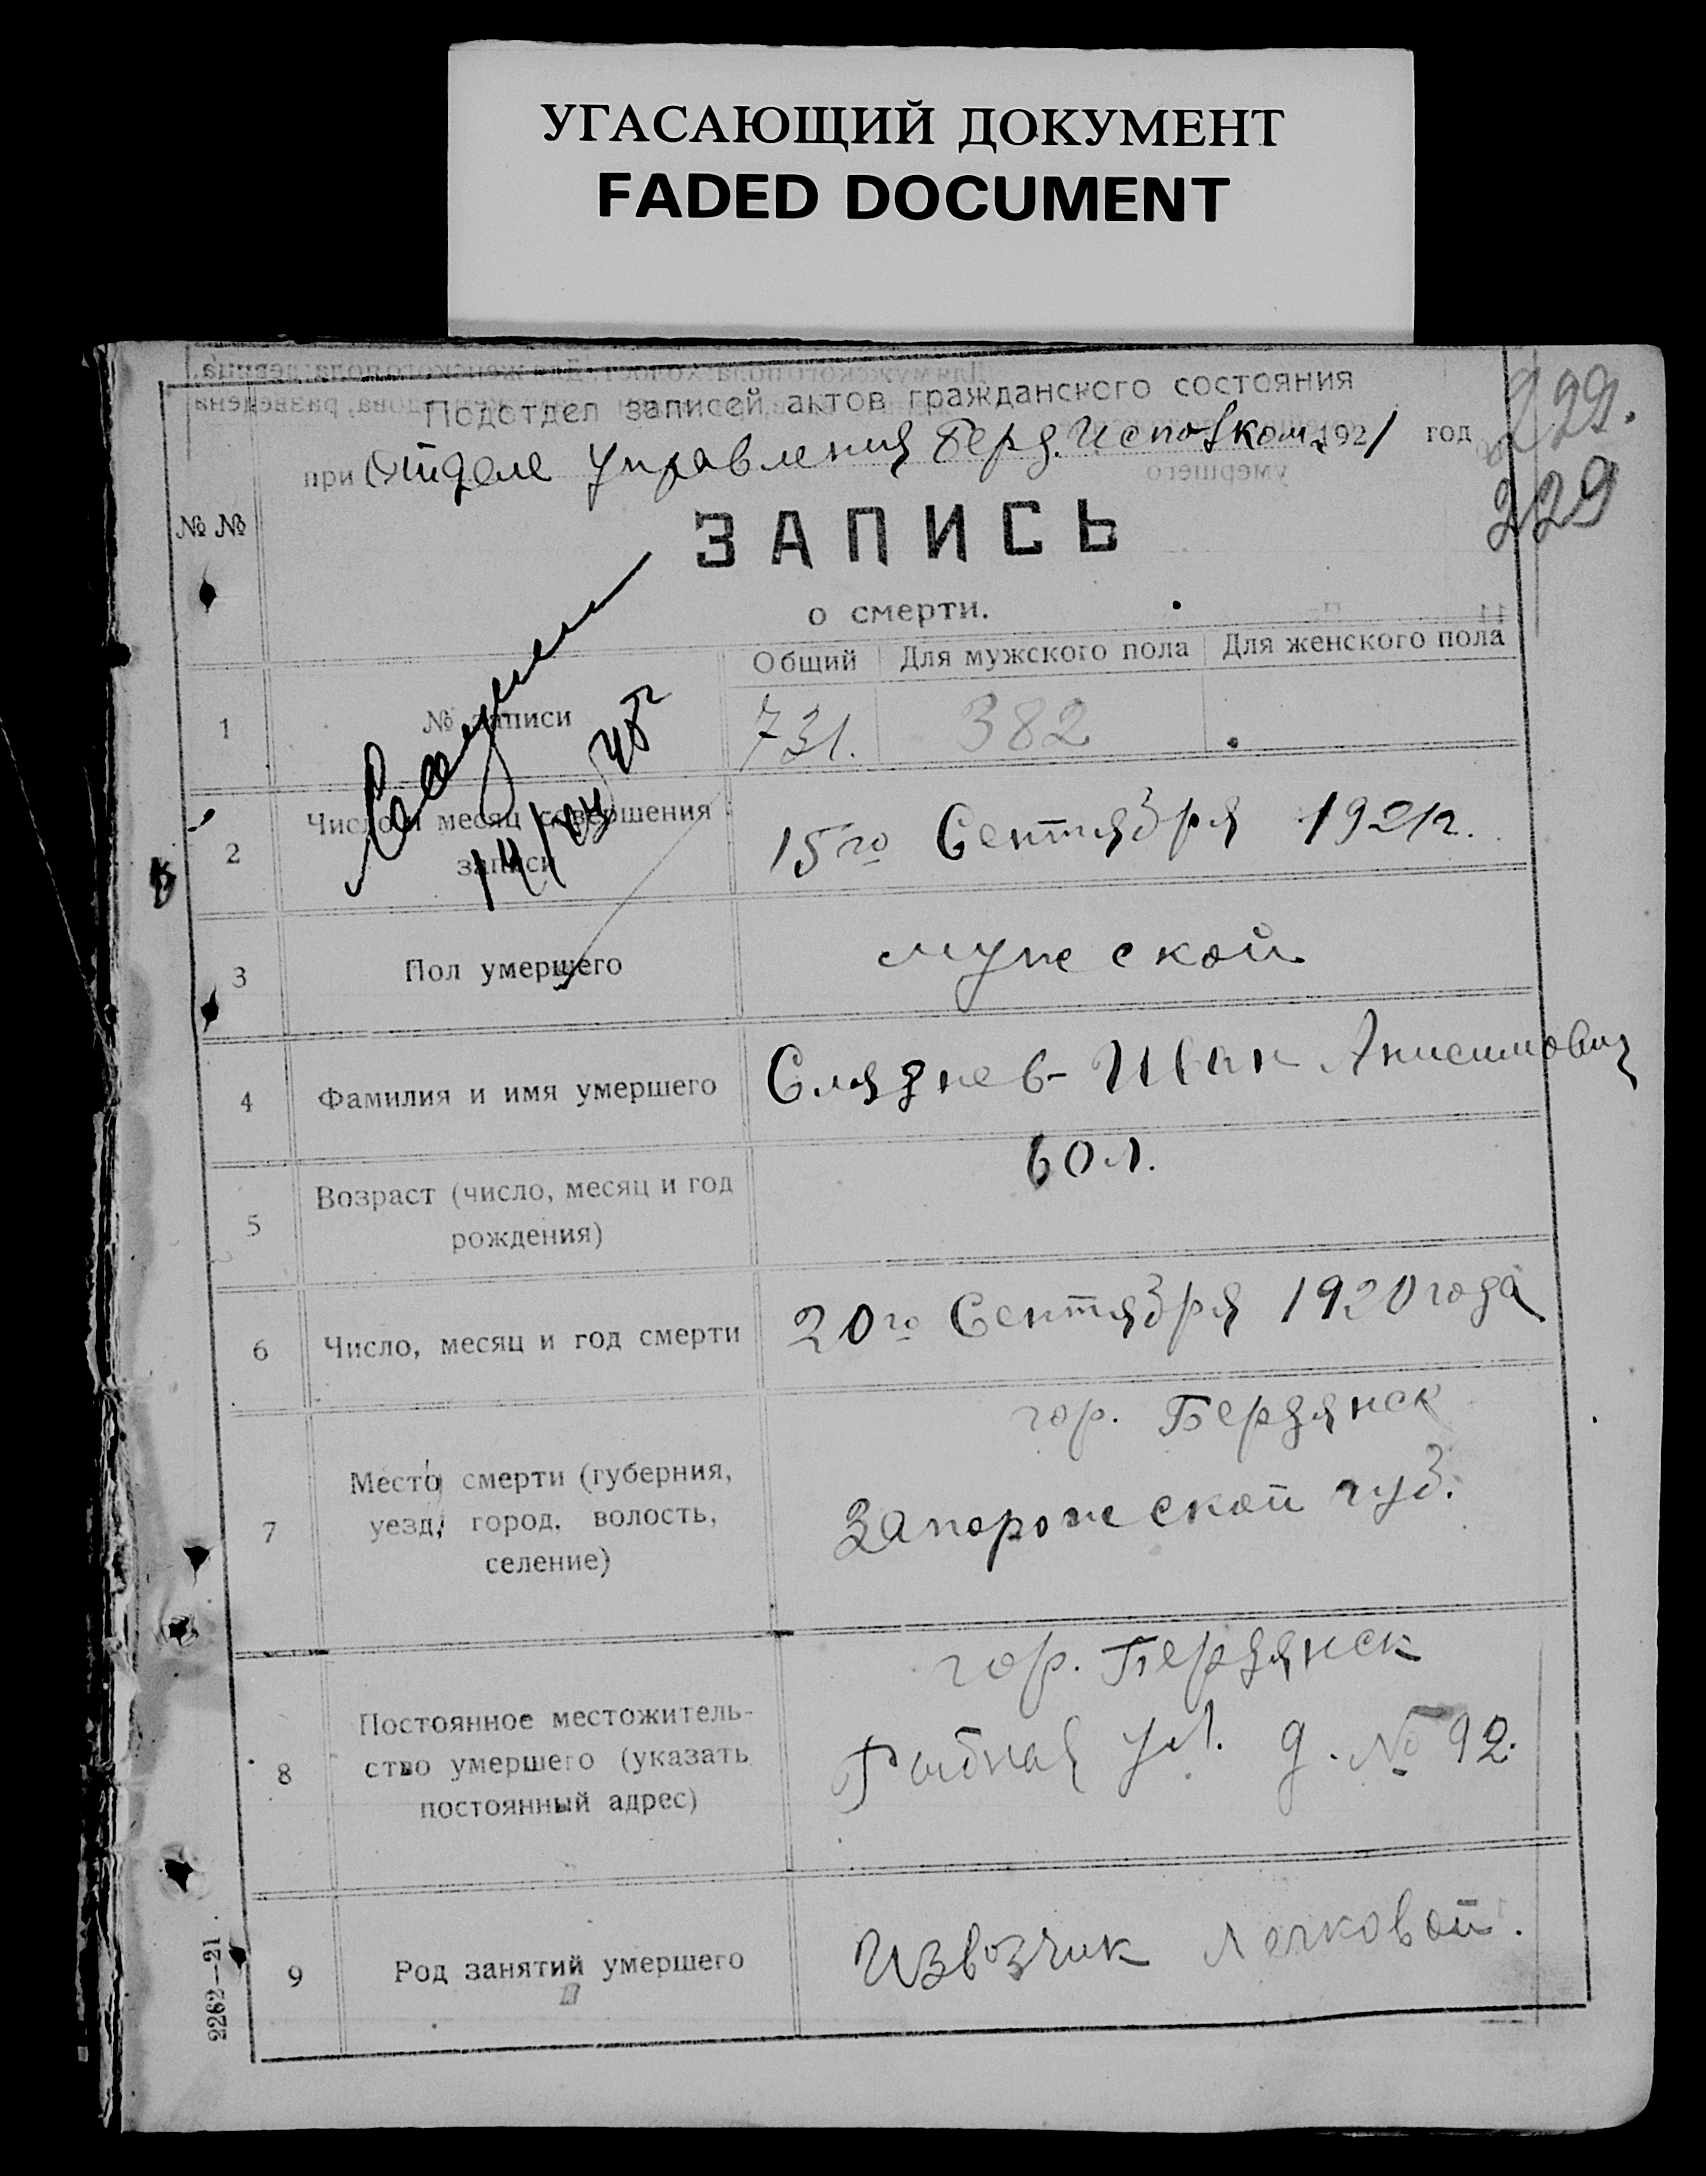 УГАСАЮЩИЙ ДОКУМЕНТ
FADED DOCUMENT
Подотдел записей актов гражданского состояния
при Отделе Управления Берд. Исполкома 1921 год
229.
229
№ №
ЗАПИСЬ
о смерти.
Общий Для мужского пола Для женского пола
1 № записи 731. 382
14/ 45г
2 Число и месяц совершения записи 15го Сентября 1921г.
3 Пол умершего мужской
4 Фамилия и имя умершего Следнев Иван Анисимович
5 Возраст (число, месяц и год рождения) 60 л.
6 Число, месяц и год смерти 20го Сентября 1920 года
7 Место смерти (губерния, уезд, город, волость, селение) гор. Бердянск
Запорожской губ.
8 Постоянное местожительство умершего (указать постоянный адрес) гор. Бердянск
Рыбная ул. д. № 92.
9 Род занятий умершего Извозчик легковой.
2262—21